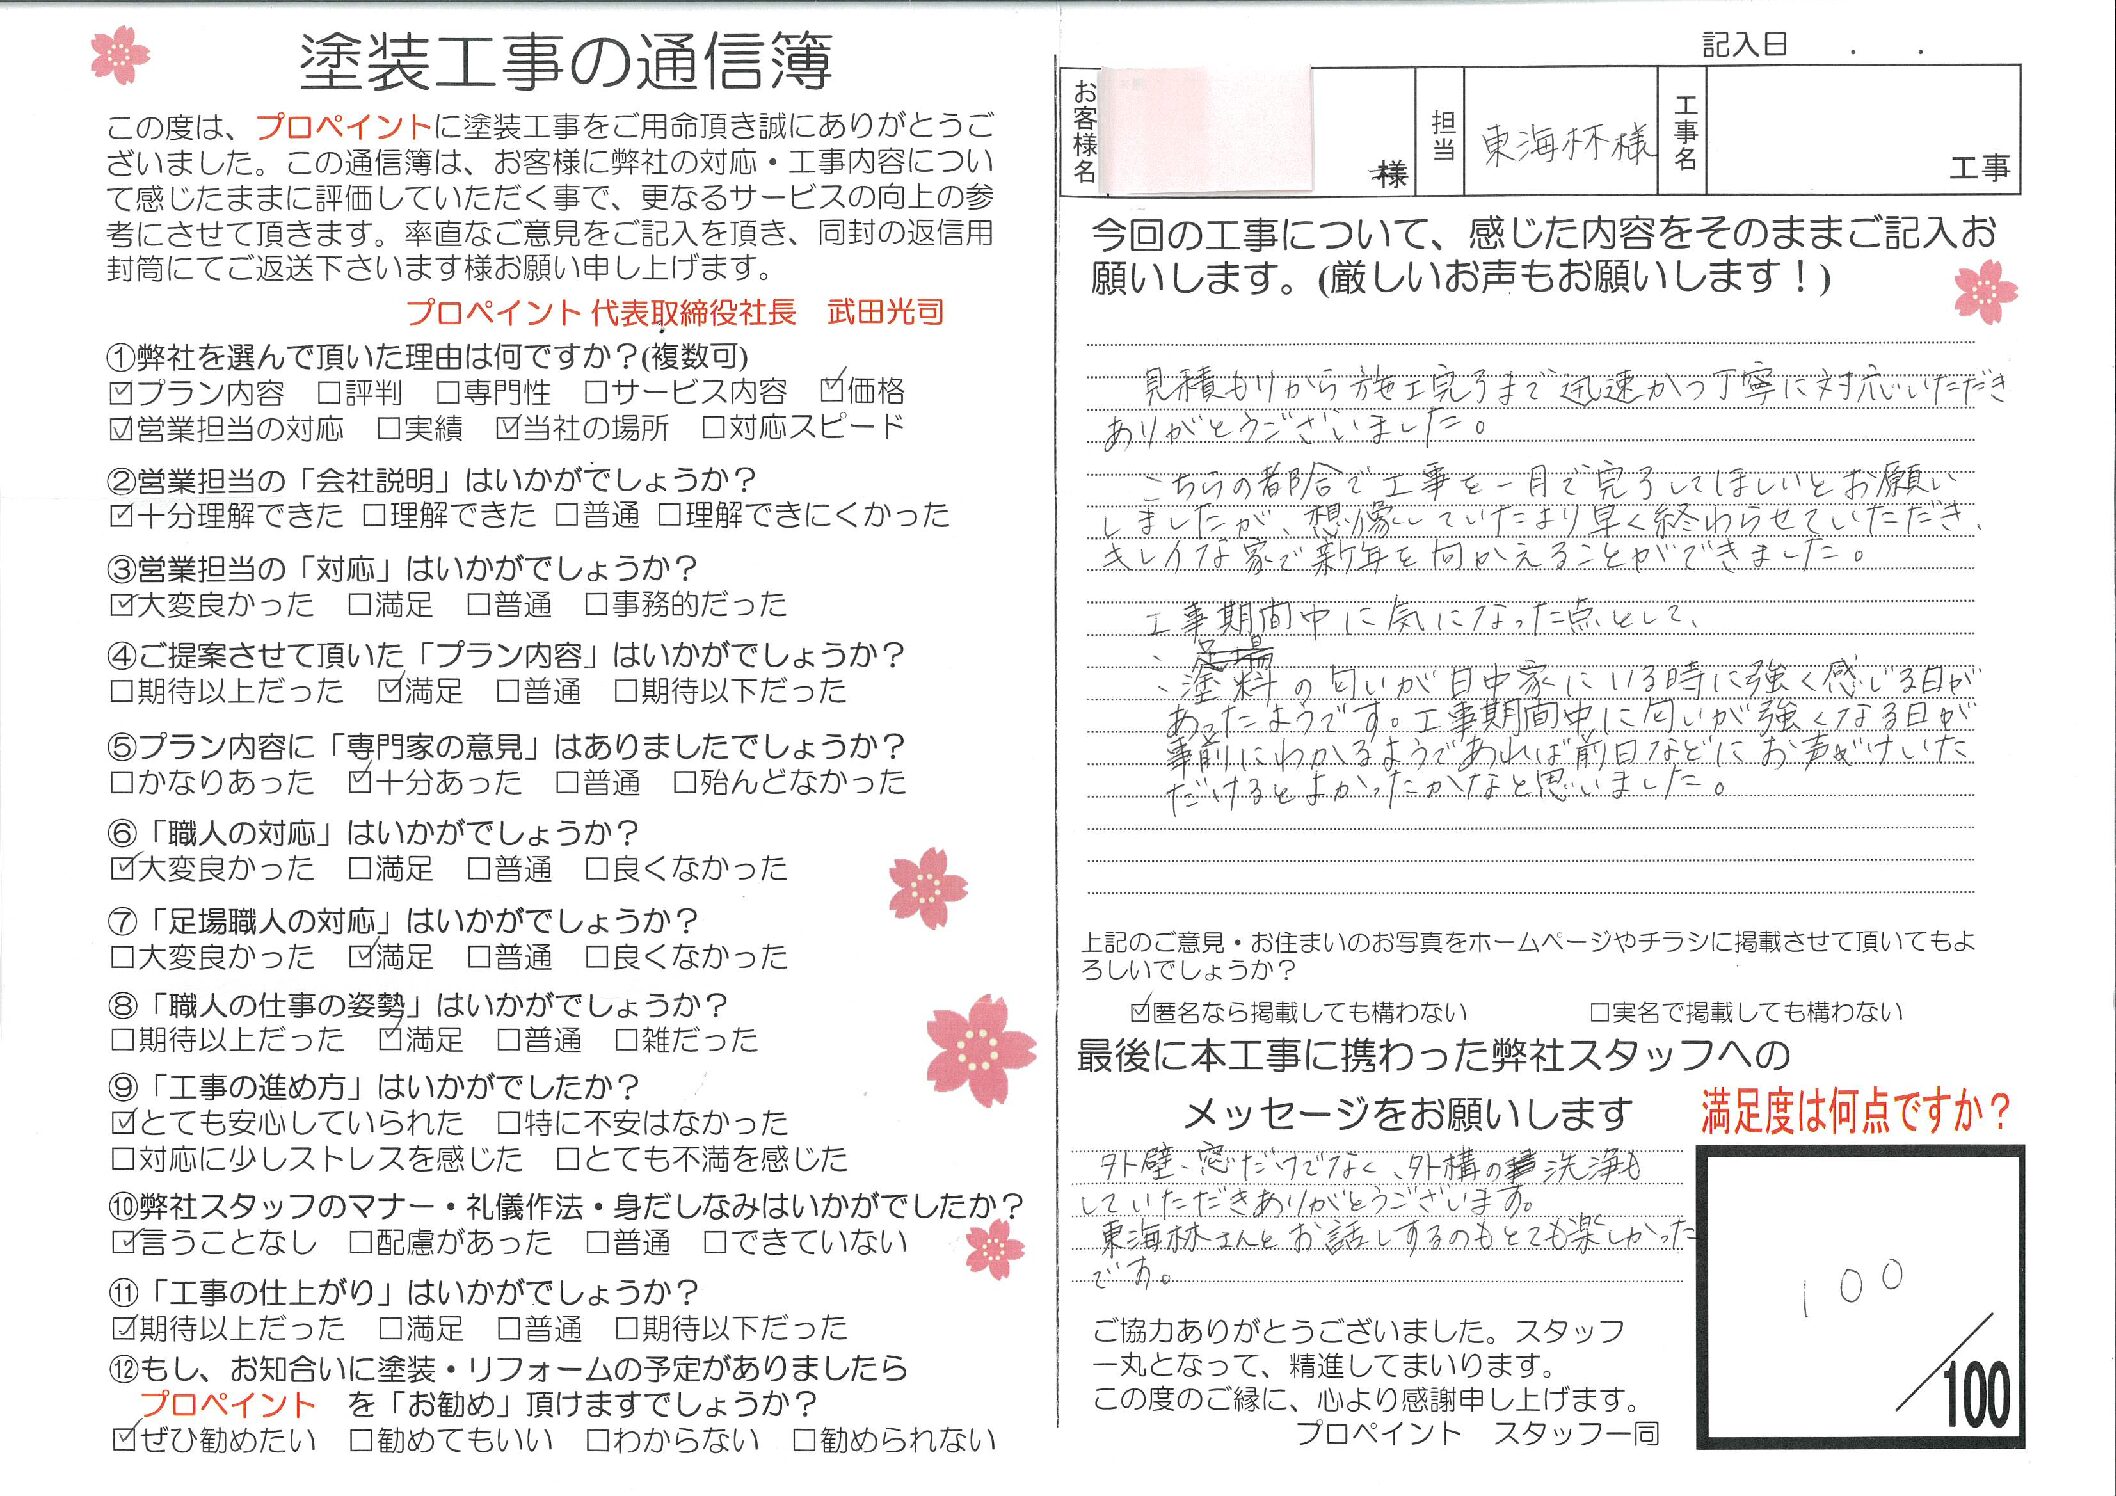 塗装工事の通信簿
この度は、プロペイントに塗装工事をご用命頂き誠にありがとうご
ざいました。この通信簿は、お客様に弊社の対応・工事内容につい
て感じたままに評価していただく事で、更なるサービスの向上の参
考にさせて頂きます。率直なご意見をご記入を頂き、同封の返信用
封筒にてご返送下さいます様お願い申し上げます。
プロペイント 代表取締役社長　武田光司
①弊社を選んで頂いた理由は何ですか？(複数可)
☑プラン内容　□評判　□専門性　□サービス内容　☑価格
☑営業担当の対応　□実績　☑当社の場所　□対応スピード
②営業担当の「会社説明」はいかがでしょうか？
☑十分理解できた □理解できた □普通 □理解できにくかった
③営業担当の「対応」はいかがでしょうか？
☑大変良かった　□満足　□普通　□事務的だった
④ご提案させて頂いた「プラン内容」はいかがでしょうか？
□期待以上だった　☑満足　□普通　□期待以下だった
⑤プラン内容に「専門家の意見」はありましたでしょうか？
□かなりあった　☑十分あった　□普通　□殆んどなかった
⑥「職人の対応」はいかがでしょうか？
☑大変良かった　□満足　□普通　□良くなかった
⑦「足場職人の対応」はいかがでしょうか？
□大変良かった　☑満足　□普通　□良くなかった
⑧「職人の仕事の姿勢」はいかがでしょうか？
□期待以上だった　☑満足　□普通　□雑だった
⑨「工事の進め方」はいかがでしたか？
☑とても安心していられた　□特に不安はなかった
□対応に少しストレスを感じた　□とても不満を感じた
⑩弊社スタッフのマナー・礼儀作法・身だしなみはいかがでしたか？
☑言うことなし　□配慮があった　□普通　□できていない
⑪「工事の仕上がり」はいかがでしょうか？
☑期待以上だった　□満足　□普通　□期待以下だった
⑫もし、お知合いに塗装・リフォームの予定がありましたら
プロペイント　を「お勧め」頂けますでしょうか？
☑ぜひ勧めたい　□勧めてもいい　□わからない　□勧められない
記入日　　．　　．
お客様名　様　担当　東海林様　工事名　工事
今回の工事について、感じた内容をそのままご記入お
願いします。(厳しいお声もお願いします！)
見積もりから施工完了まで迅速かつ丁寧に対応いただき
ありがとうございました。
こちらの都合で工事を一月で完了してほしいとお願い
しましたが、想像していたより早く終わらせていただき、
キレイな家で新年を向かえることができました。
工事期間中に気になった点として、
、足場
、塗料の匂いが日中家にいる時に強く感じる日が
あったようです。工事期間中に匂いが強くなる日が
事前にわかるようであれば前日などにお声がけいた
だけるとよかったかなと思いました。
上記のご意見・お住まいのお写真をホームページやチラシに掲載させて頂いてもよ
ろしいでしょうか？
☑匿名なら掲載しても構わない　□実名で掲載しても構わない
最後に本工事に携わった弊社スタッフへの
メッセージをお願いします
外壁、窓だけでなく、外構の洗浄も
していただきありがとうございます。
東海林さんとお話しするのもとても楽しかった
です。
満足度は何点ですか？
100
／100
ご協力ありがとうございました。スタッフ
一丸となって、精進してまいります。
この度のご縁に、心より感謝申し上げます。
プロペイント　スタッフ一同